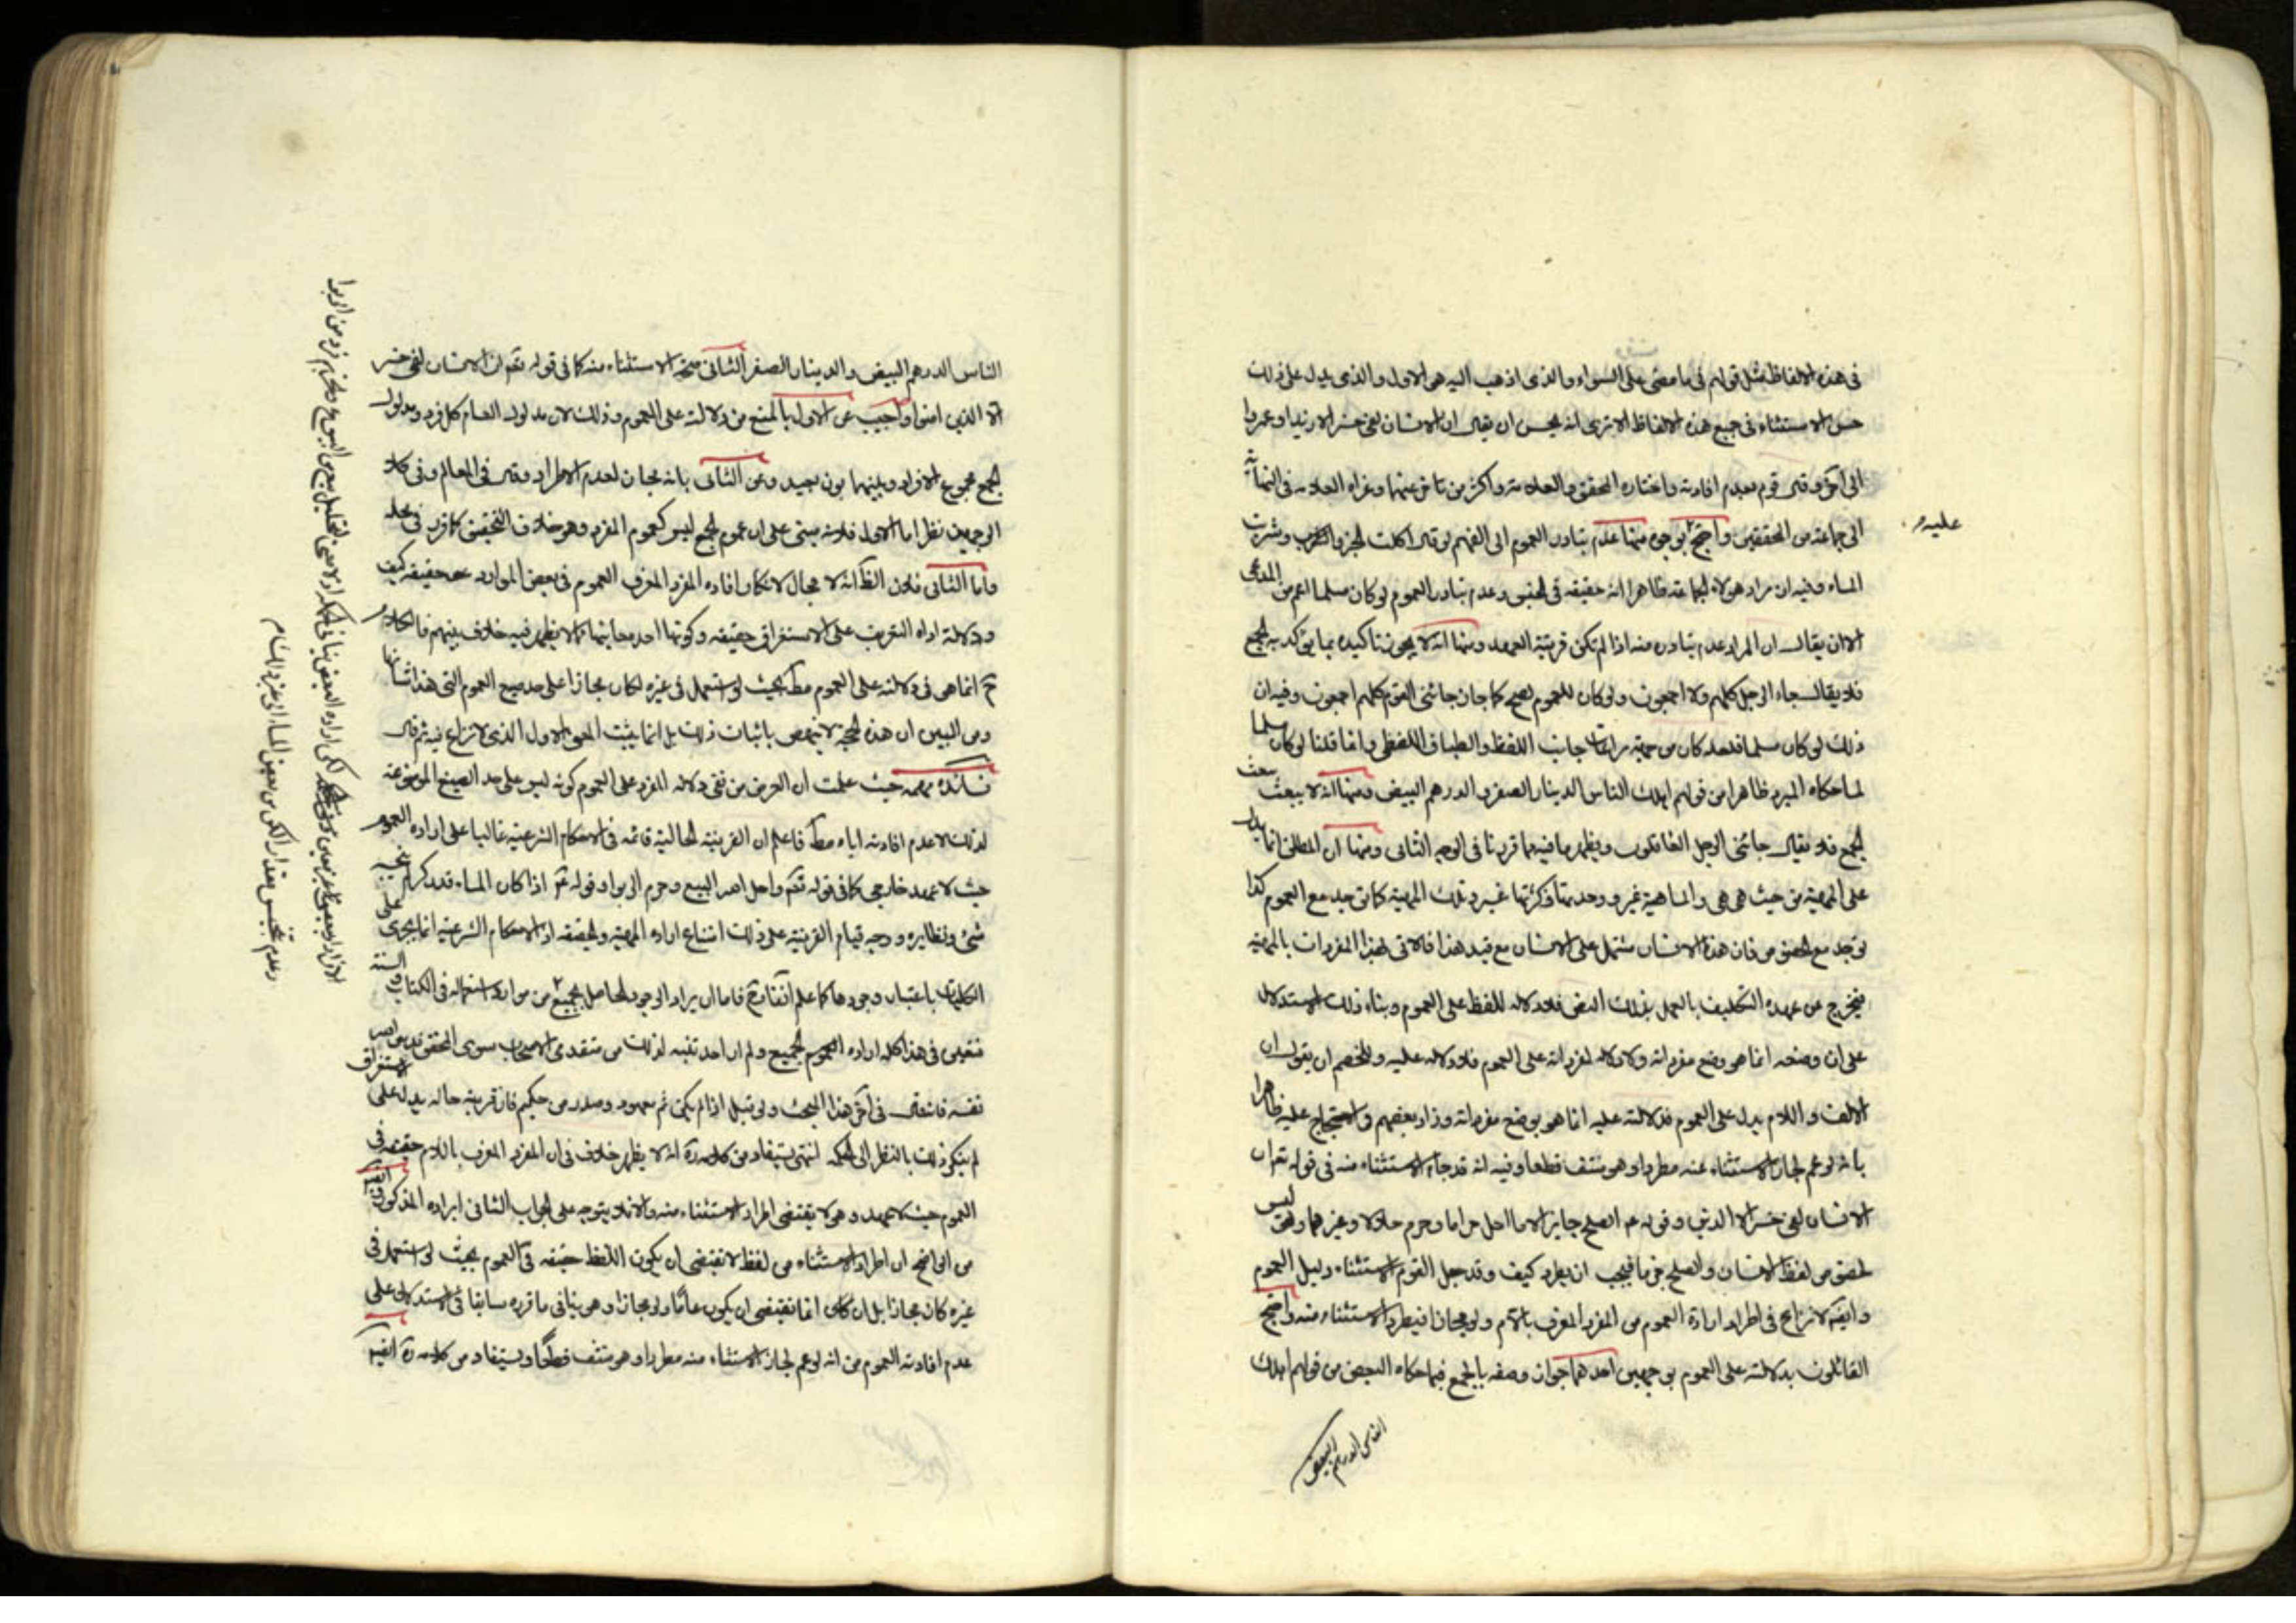 في هذه الالفاظ مثل قولهم في ما مضى على السواء والذي اذهب اليه هو الاول والذي يدل على ذلك
حسن الاستثناء في جميع هذه الالفاظ الا ترى انه يحسن ان يقال ان الانسان لفي خسر الا زيدا وعمروا
الى آخره وقال قوم بعدم افادته واختاره المحقق والعلامة واكثر من تاخر عنهما وعزاه العلامة في النهاية
الى جماعة من المحققين واحتج بوجوه منها عدم تبادر العموم الى الفهم لو قال اكلت الخبز وشربت
عليه
الماء وفيه ان مراد هؤلاء الجماعة ظاهرا انه حقيقة في الجنس وعدم تبادر العموم لو كان مسلما اعم من المدعى
الا ان يقال ان المراد عدم تبادره منه اذا لم تكن قرينة العهد ومنها انه لا يجوز تاكيده بما يؤكد به الجمع
فلا يقال جاء الرجل كلهم ولا اجمعون ولو كان للعموم لصح كما جاز جائني القوم كلهم اجمعون وفيه ان
ذلك لو كان مسلما فلعله كان من جهة مراعات جانب اللفظ والطباق اللفظي وانما قلنا لو كان مسلما
لما حكاه المبرد ظاهرا من قولهم اهلك الناس الدينار الصفر والدرهم البيض ومنها انه لا ينعت بنعت
الجمع فلا يقال جائني الرجل الفاعلون ويظهر ما فيه مما قررنا في الوجه الثاني ومنها ان المطلق انما يدل
على المهية من حيث هي هي والماهية غير ووحدتها وكثرتها غير وتلك المهية كما توجد مع العموم كذا
توجد مع الخصوص فان هذا الانسان مشتمل على الانسان مع قيد هذا فالاتي بهذا المفرد ات بالمهية
فيخرج عن عهدة التكليف بالعمل بذلك النص فلا دلالة للفظ على العموم وبناء ذلك الاستدلال
على ان وضعه انما هو وضع مفرداته ولا دلالة لمفرداته على العموم فلا دلالة عليه وللخصم ان يقول ان
الالف واللام يدل على العموم فدلالته عليه انما هو بوضع مفرداته وزاد بعضهم في الاحتجاج عليه ظاهرا
بانه لو عم لجاز الاستثناء منه مطردا وهو منتف قطعا وفيه انه قد جاء الاستثناء منه في قوله تعالى ان
الانسان لفي خسر الا الذين وقوله عم الصلح جايز الا ما احل حراما وحرم حلالا وغيرهما وليس
لخصوص لفظ الانسان والصلح فيجب ان يطرد كيف وقد جعل القوم الاستثناء دليل العموم
وايضا لا نزاع في اطراد ارادة العموم من المفرد المعرف باللام ولو مجازا فيطرد الاستثناء منه واحتج
القائلون بدلالته على العموم بوجهين احدهما جواز وصفه بالجمع فيما حكاه البعض من قولهم اهلك
الناس الدرهم البيض
الناس الدرهم البيض والدينار الصفر الثاني صحة الاستثناء منه كما في قوله تعالى ان الانسان لفي خسر
الا الذين امنوا واجيب عن الاول بالمنع من دلالته على العموم وذلك لان مدلول العام كل فرد ومدلول
الجمع مجموع الافراد وبينهما بون بعيد وعن الثاني بانه مجاز لعدم الاطراد وقال في المعالم وفي كلا
الوجهين نظر اما الاول فلانه مبني على ان عموم الجمع ليس كعموم المفرد وهو خلاف التحقيق كما قرر في محله
واما الثاني فلان الظ انه لا مجال لانكار افادة المفرد المعرف العموم في بعض الموارد حقيقة كيف
ودلالة اداة التعريف على الاستغراق حقيقة وكونها احد معانيها مما لا يظهر فيه خلاف بينهم فالكلام
ح انما هو في دلالته على العموم مطلقا بحيث لو استعمل في غيره لكان مجازا على حد صيغ العموم التي هذا شانها
ومن البين ان هذه الحجة لا تنهض باثبات ذلك بل انما يثبت المعنى الاول الذي لا نزاع فيه ثم قال
فائدة مهمة حيث علمت ان الغرض من نفي دلالة المفرد على العموم كونه ليس على حد الصيغ الموضوعة
لذلك لا عدم افادته اياه مطلقا فاعلم ان القرينة الحالية قائمة في الاحكام الشرعية غالبا على ارادة العموم
حيث لا عهد خارجي كما في قوله تعالى واحل الله البيع وحرم الربوا وقوله عم اذا كان الماء قدر كر لم ينجسه
شيء ونظايره ووجه قيام القرينة على ذلك امتناع ارادة المهية والحقيقة اذ الاحكام الشرعية انما تجري على
الكليات باعتبار وجودها كما علم آنفا وح فاما ان يراد الوجود الحاصل بجميع من موارد استعماله في الكتاب والسنة
فتعين في هذا كله ارادة العموم والجميع ولم ار احد تنبه لذلك من متقدمي الاصحاب سوى المحقق قدس الله
نفسه فانه قال في آخر هذا البحث ولو قيل اذا لم يكن ثم معهود وصدر من حكيم فان قرينة حاله يدل على الاستغراق
لم ينكر ذلك بالنظر الى الحكمة انتهى يستفاد من كلامه ره انه لا يظهر خلاف في ان المفرد المعرف باللام حقيقة في
العموم حيث لا عهد وهو لا يقتضي اطراد الاستثناء منه والا فلا يتوجه على الجواب الثاني ايراده المذكور وفيه
من الواضح ان اطراد الاستثناء من لفظ لا يقتضي ان يكون اللفظ حقيقة في العموم بحيث لو استعمل في
غيره كان مجازا بل ان كان انما تقتضي ان يكون عاما ولو مجازا وهو ينافي ما قرره سابقا في الاستدلال على
عدم افادته العموم من انه لو عم لجاز الاستثناء منه مطردا وهو منتف قطعا ويستفاد من كلامه ره ايضا
بيع من البيوع وتحريم فرد من الربوا
وعدم تنجيس مقدار الكر من بعض الماء